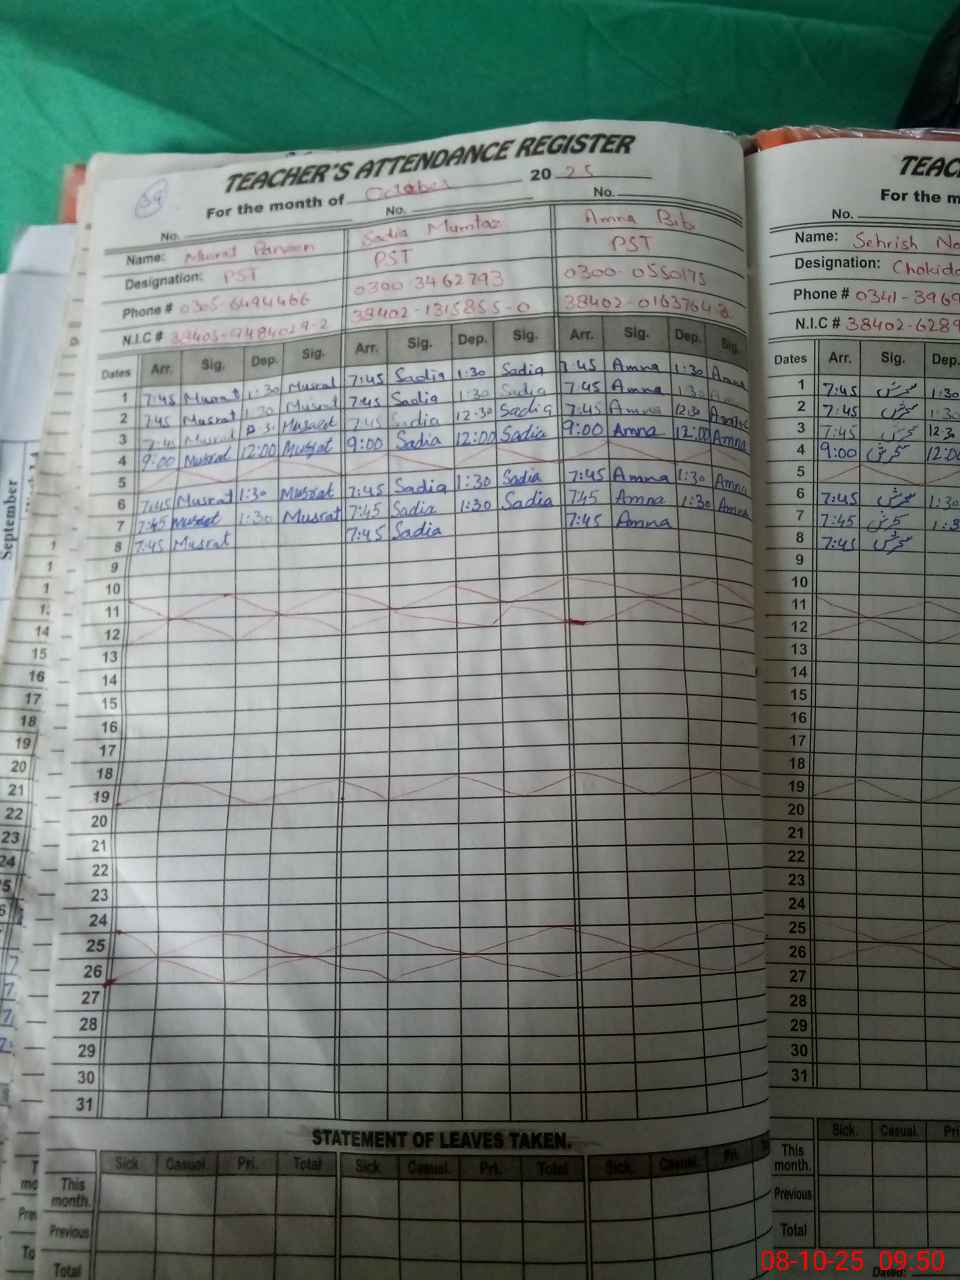 TEACHER'S ATTENDANCE REGISTER
For the month of October 2025
No. No. No.
Name: Musrat Parveen Sadia Mumtaz Amna Bibi
Designation: PST PST PST
Phone # 0305-6494466 0300 3462793 0300-0550175
N.I.C # 38403-9484029-2 38402-1315855-0 38402-0163764-8
Dates Arr. Sig. Dep. Sig. Arr. Sig. Dep. Sig. Arr. Sig. Dep. Sig.
1 7:45 Musrat 1:30 Musrat 7:45 Sadia 1:30 Sadia 7:45 Amna 1:30 Amna
2 7:45 Musrat 1:30 Musrat 7:45 Sadia 1:30 Sadia 7:45 Amna 1:30 Amna
3 7:45 Musrat Musarat 7:45 Sadia 12:30 Sadia 7:45 Amna 12:30
4 9:00 Musrat 12:00 Musrat 9:00 Sadia 12:00 Sadia 9:00 Amna 12:00 Amna
5
6 7:45 Musrat 1:30 Musrat 7:45 Sadia 1:30 Sadia 7:45 Amna 1:30 Amna
7 7:45 Musrat 1:30 Musrat 7:45 Sadia 1:30 Sadia 745 Amna 1:30 Amna
8 7:45 Musrat 7:45 Sadia 7:45 Amna
9
10
11
12
13
14
15
16
17
18
19
20
21
22
23
24
25
26
27
28
29
30
31
STATEMENT OF LEAVES TAKEN.
Sick. Casual. Pri. Total Sick. Casual. Pri. Total Sick. Casual. Pri.
This month.
Previous
Total
TEAC
For the m
No.
Name: Sehrish Na
Designation: Chokida
Phone # 0341-3969
N.I.C # 38402-6289
Dates Arr. Sig. Dep.
1 7:45 سحرش 1:30
2 7:45 سحرش 1:30
3 7:45 سحرش 12:3
4 9:00 سحرش 12:00
5
6 7:45 سحرش 1:30
7 7:45 سحرش 1:3
8 7:45 سحرش
9
10
11
12
13
14
15
16
17
18
19
20
21
22
23
24
25
26
27
28
29
30
31
Sick. Casual. Pri
This month.
Previous
Total
Dated:
September
14
15
16
17
18
19
20
21
22
23
24
08-10-25 09:50